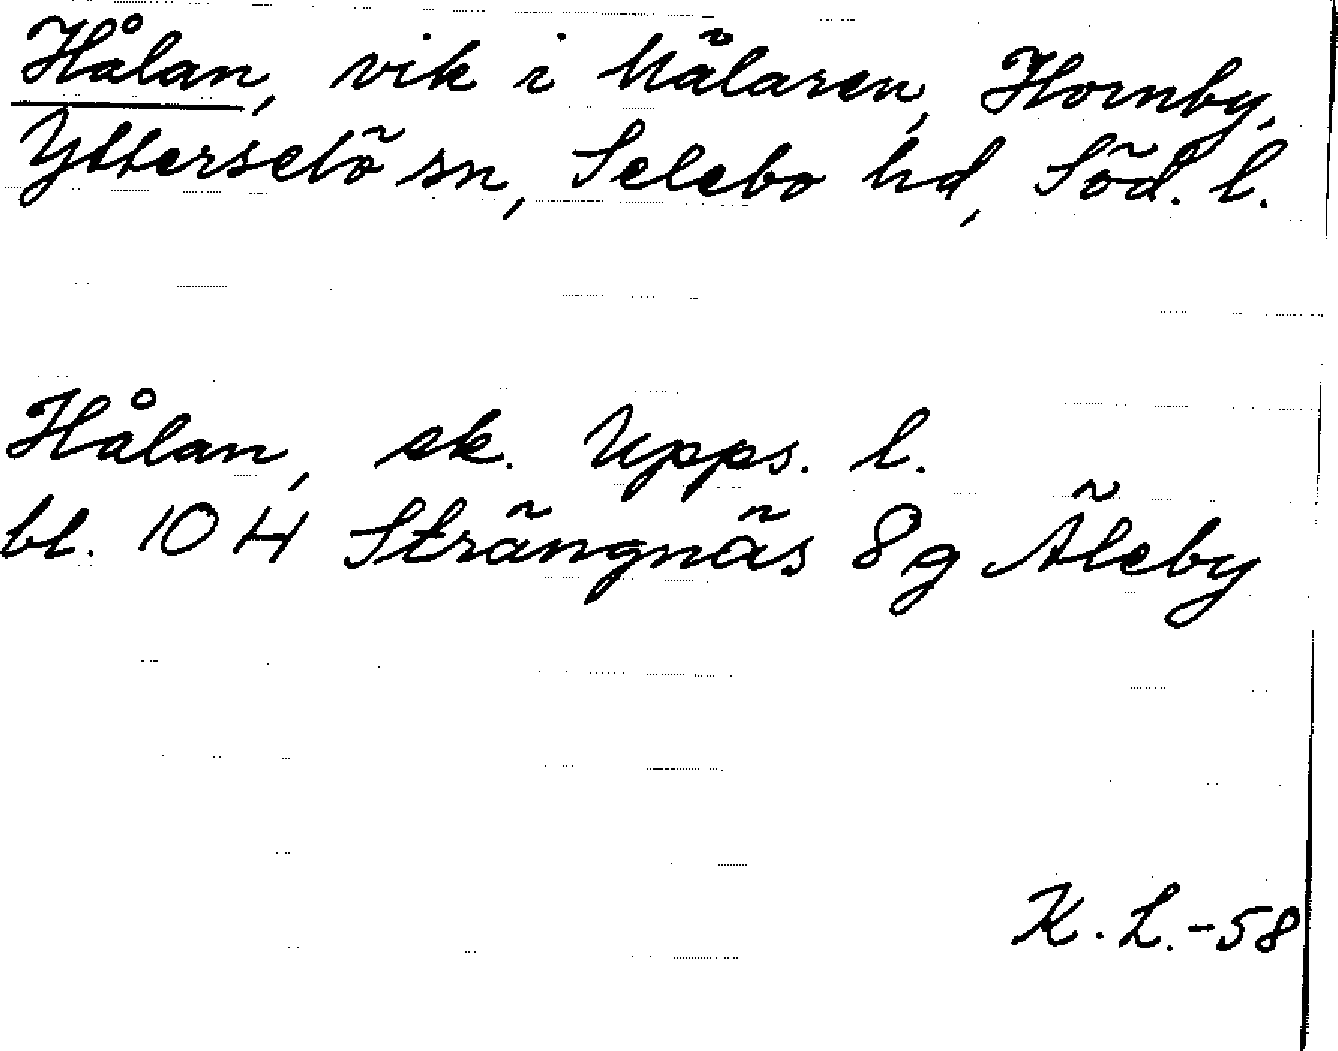 Hålan, vik i Mälaren, Hornby,
Ytterselö sn, Selebo hd, Söd. l.
Hålan, ek. Upps. l.
bl. 10 H Strängnäs 8g Äleby
K. L. -58